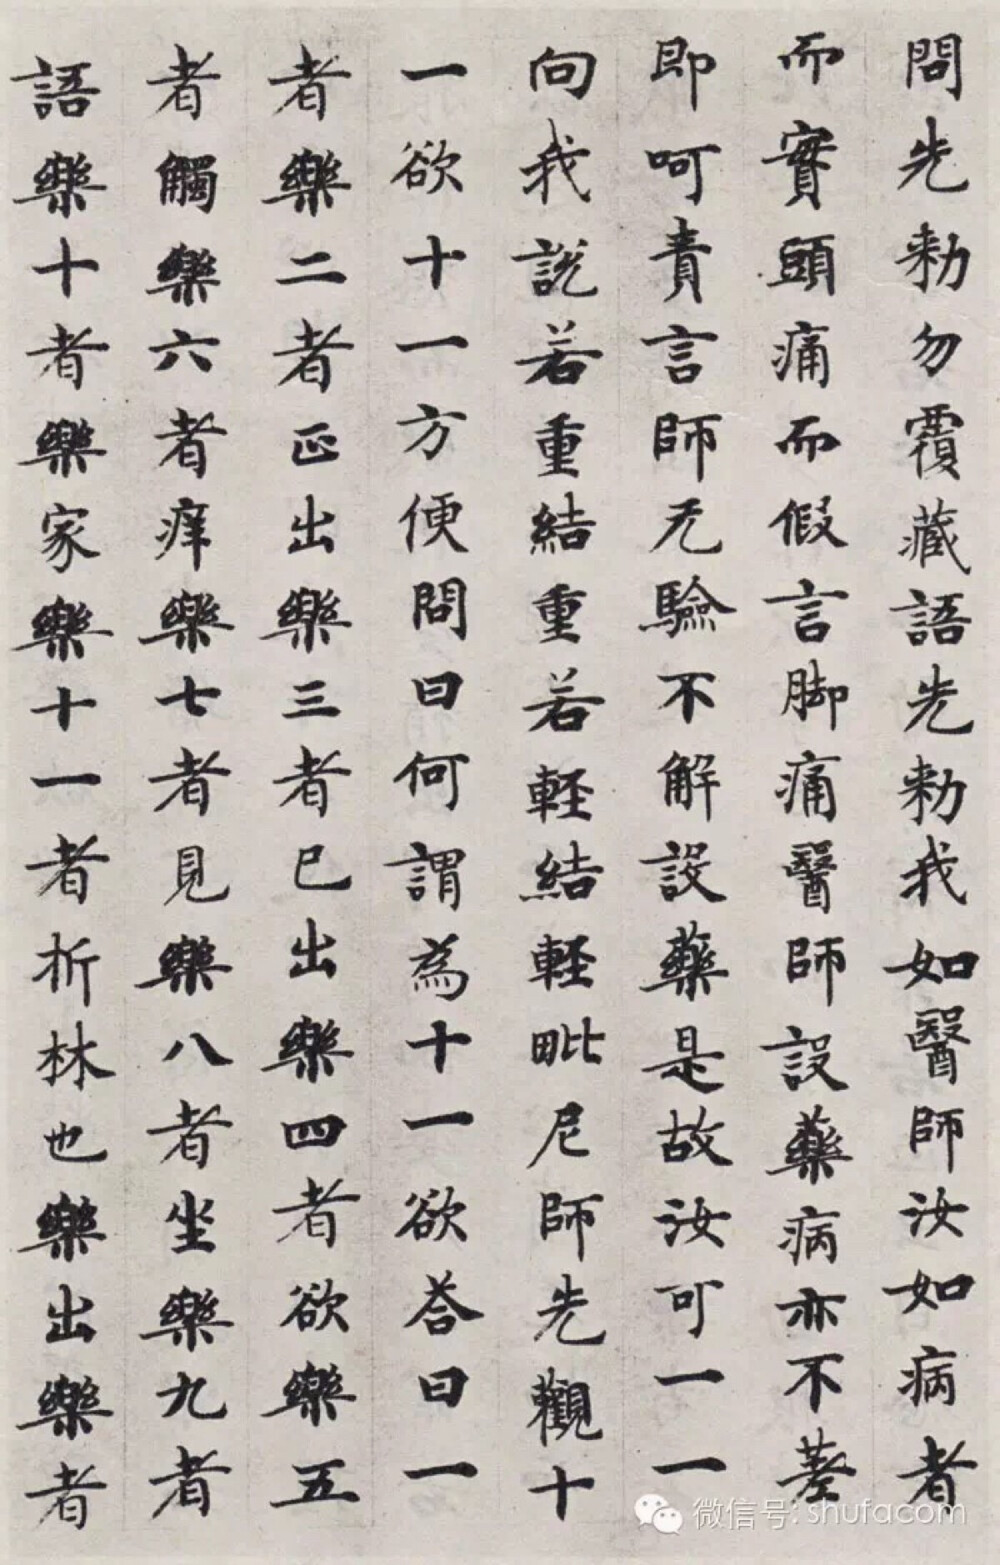 問先勑勿覆藏語先勑我如醫師汝如病者
而實頭痛而假言脚痛醫師設藥病亦不差
即呵責言師无驗不解設藥是故汝可一一
向我說若重結重若軽結軽毗尼師先觀十
一欲十一方便問曰何謂為十一欲荅曰一
者樂二者正出樂三者已出樂四者欲樂五
者觸樂六者痒樂七者見樂八者坐樂九者
語樂十者樂家樂十一者折林也樂出樂者
微信号: shufacom